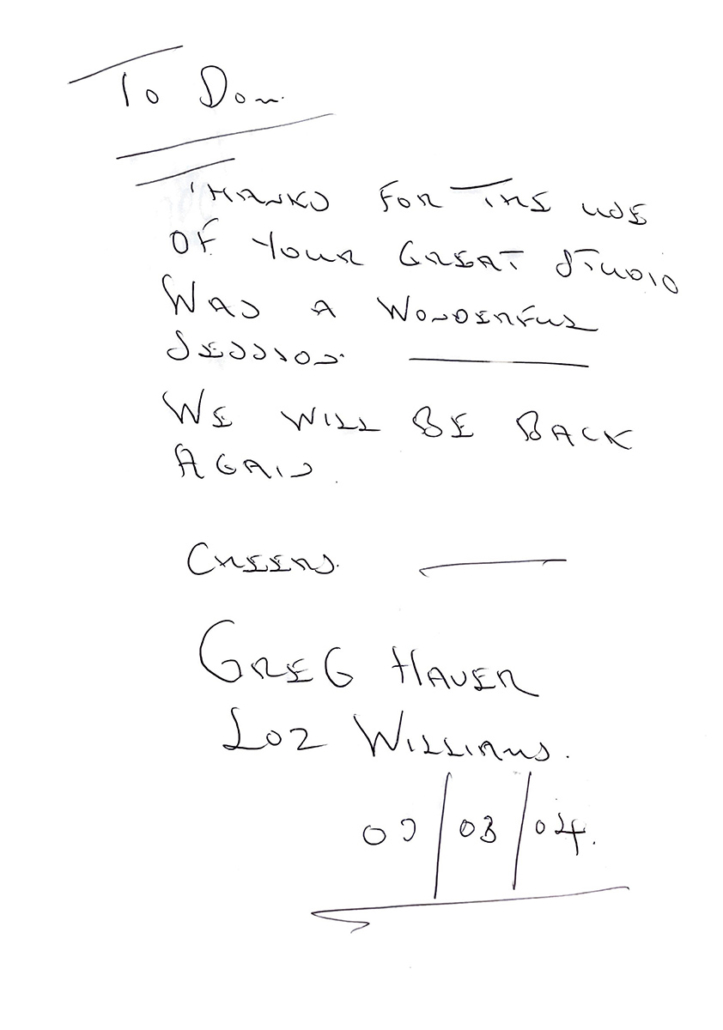 To Don.
THANKS FOR THE USE
OF YOUR GREAT STUDIO
WAS A WONDERFUL
SESSION.
WE WILL BE BACK
AGAIN.
CHEERS.
GREG HAVER
LOZ WILLIAMS.
/03/04.